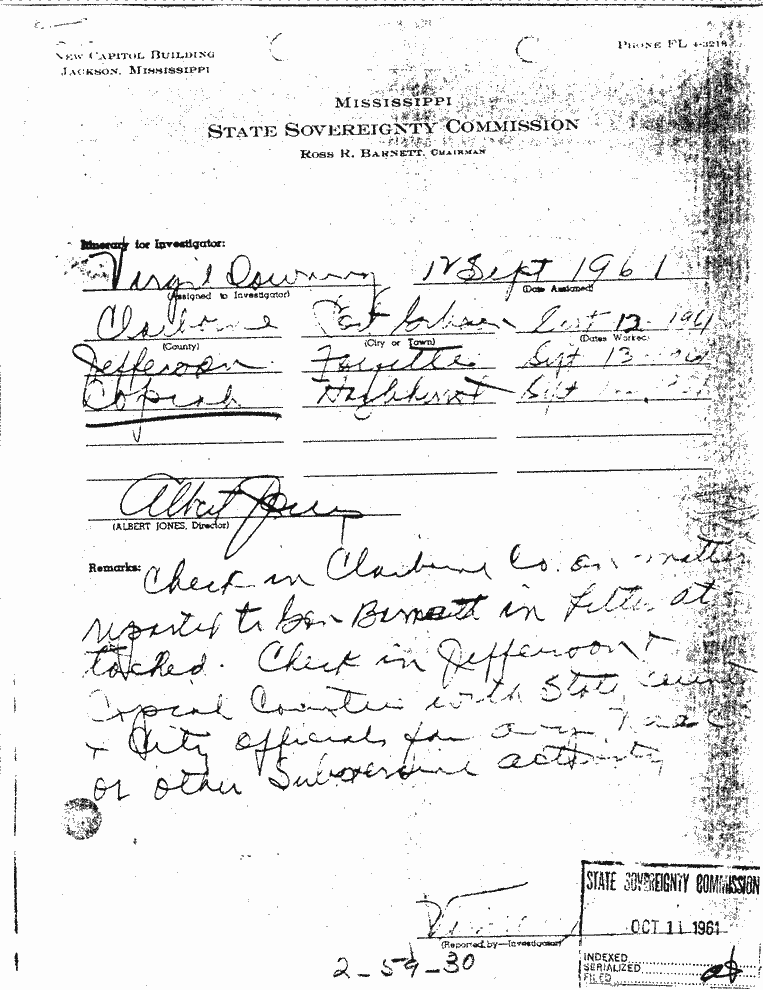 NEW CAPITOL BUILDING
JACKSON, MISSISSIPPI
PHONE FL 4-3218
MISSISSIPPI
STATE SOVEREIGNTY COMMISSION
ROSS R. BARNETT, CHAIRMAN
Itinerary for Investigator:
Virgil Downing 12 Sept 1961
(Assigned to Investigator) (Date Assigned)
Claiborne Port Gibson Sept 12 1961
(County) (City or Town) (Dates Worked)
Jefferson Fayette Sept 13
Copiah Hazlehurst Sept
Albert Jones
(ALBERT JONES, Director)
Remarks: Check in Claiborne Co. on matter
reported to Gov Barnett in letter at
tached. Check in Jefferson +
Copiah Counties with State, County
+ City officials for any
or other Subversive activity
(Reported by—Investigator)
2-59-30
STATE SOVEREIGNTY COMMISSION
OCT 11 1961
INDEXED
SERIALIZED
FILED